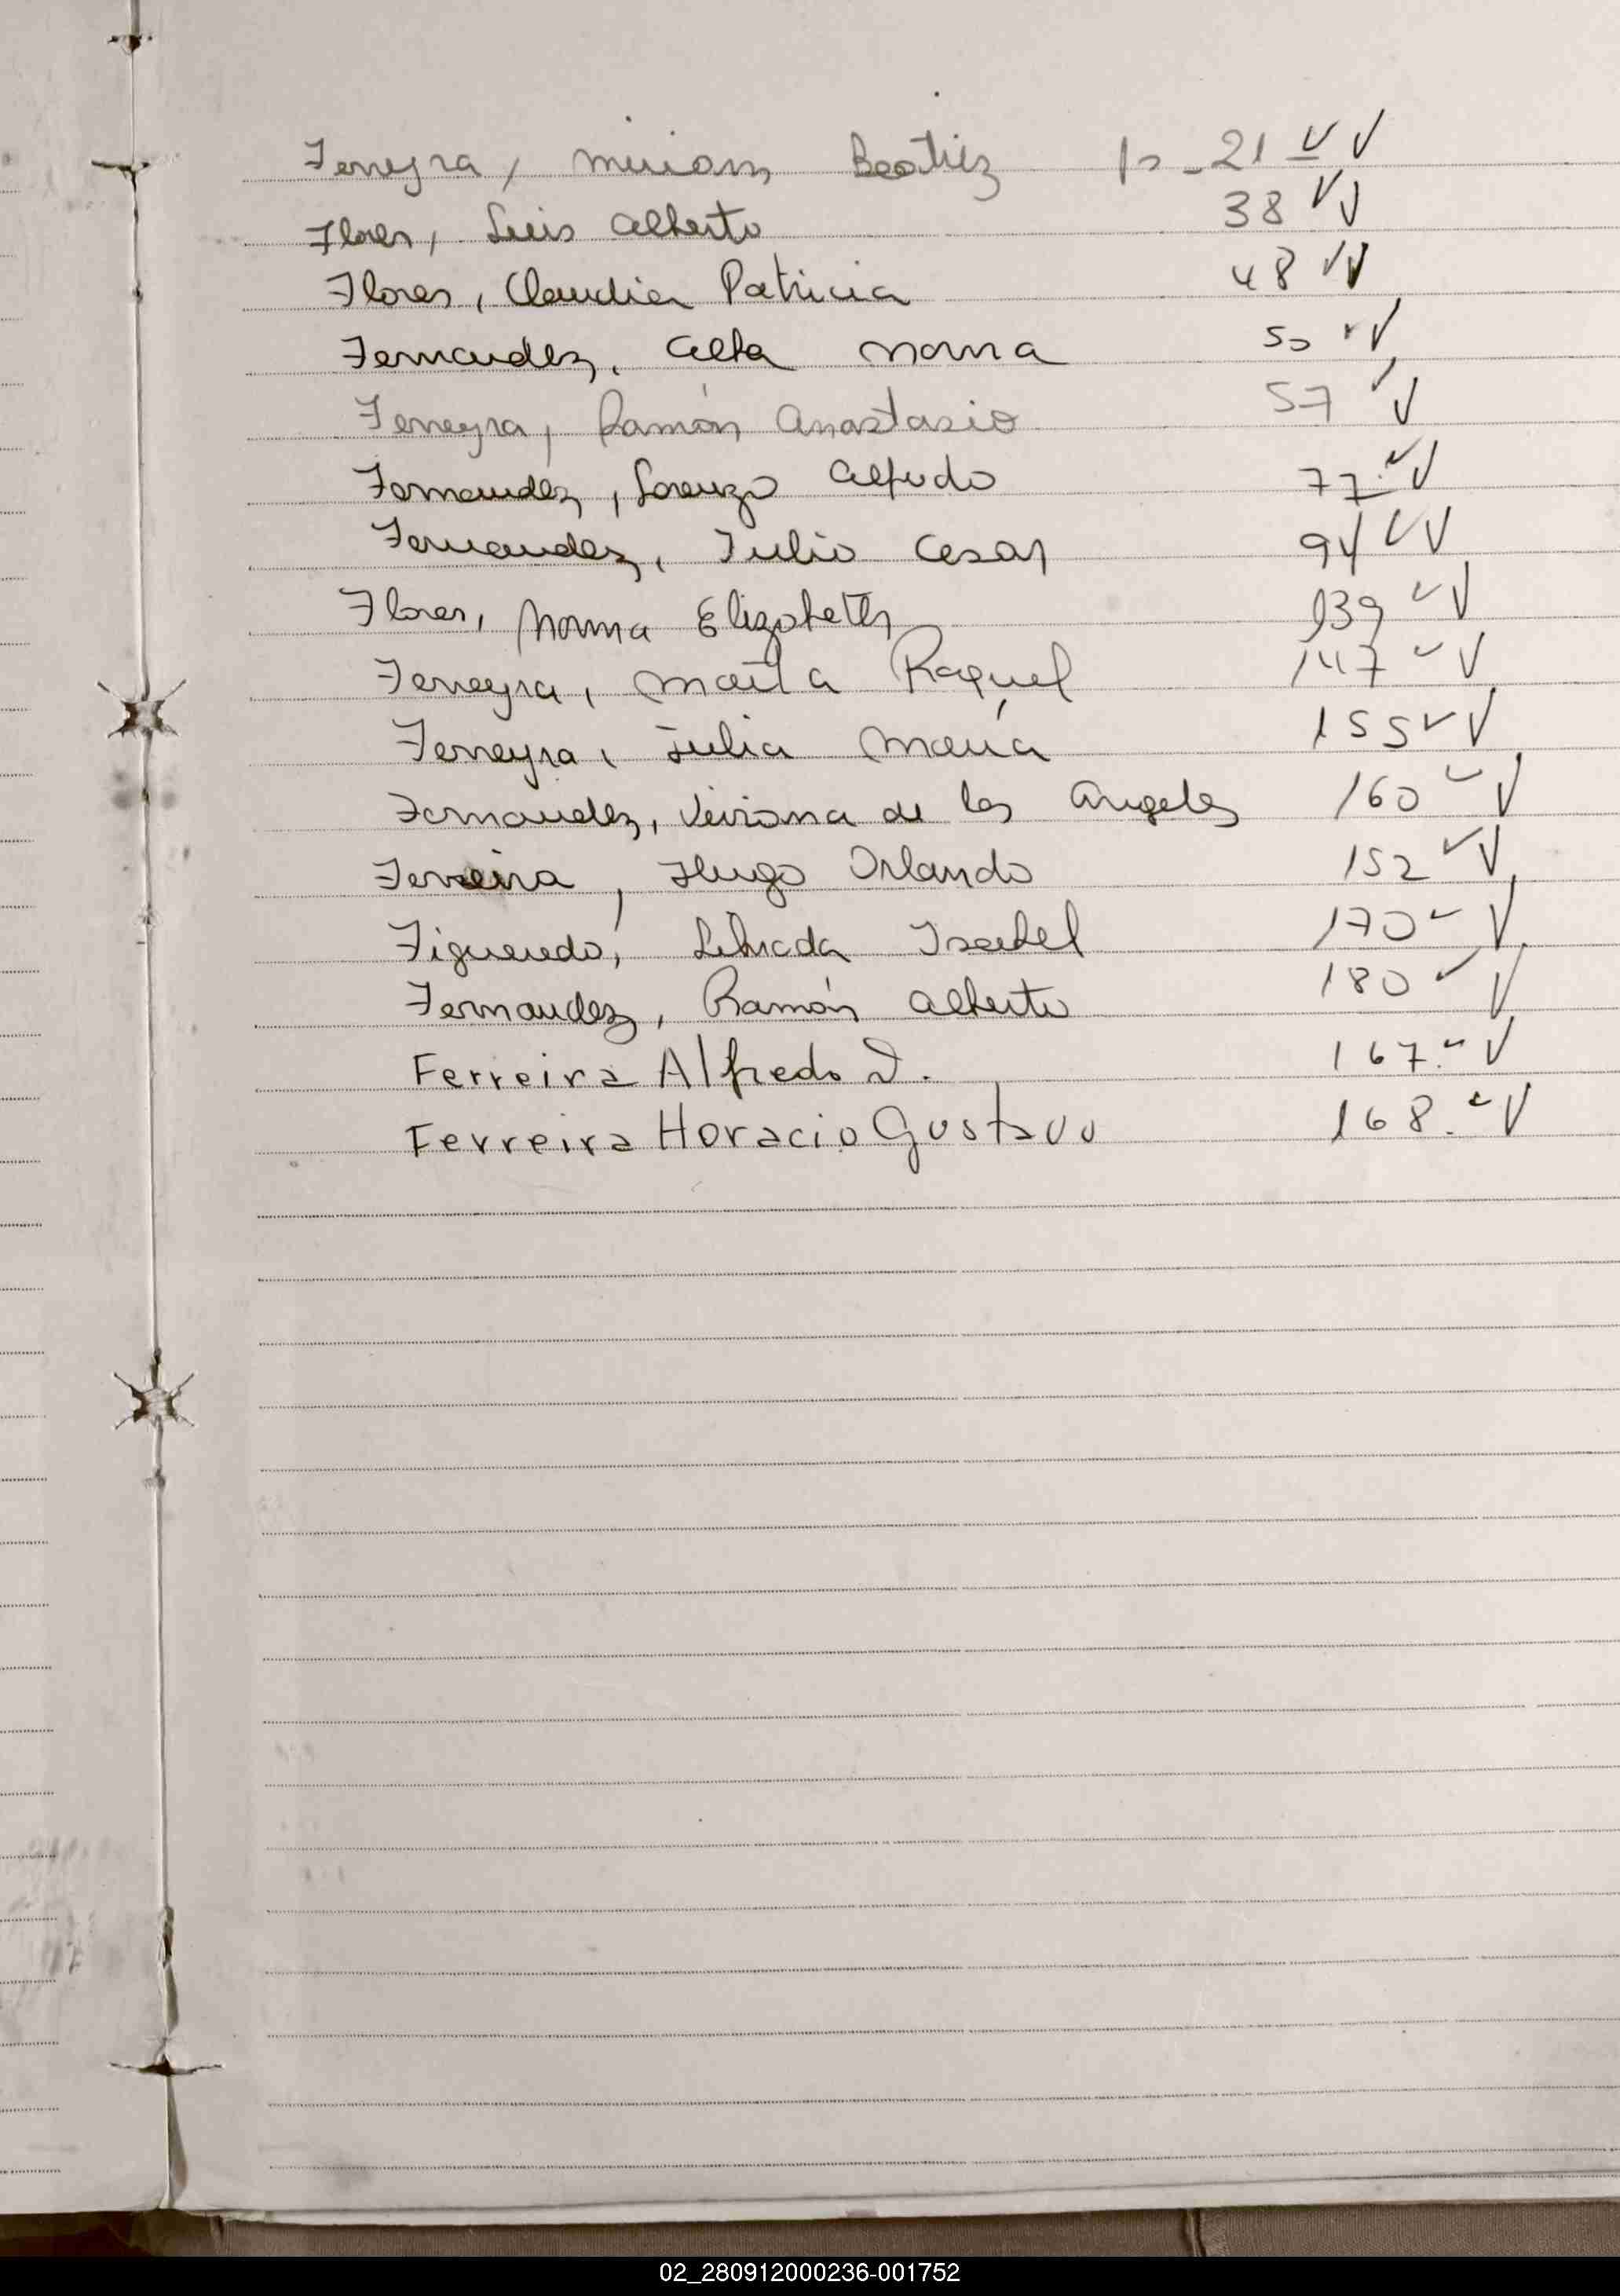 Ferreyra, Miriam Beatriz fo - 21 ✓ ✓
Flores, Luis Alberto 38 ✓ ✓
Flores, Claudia Patricia 48 ✓ ✓
Fernandez, Alba Norma 50 ✓ ✓
Ferreyra, Ramón Anastasio 57 ✓ ✓
Fernandez, Lorenzo Alfredo 77 ✓ ✓
Fernandez, Julio Cesar 94 ✓ ✓
Flores, Norma Elizabeth 139 ✓ ✓
Ferreyra, Marta Raquel 147 ✓ ✓
Ferreyra, Julia María 155 ✓ ✓
Fernandez, Viviana de los Angeles 160 ✓ ✓
Ferreira, Hugo Orlando 152 ✓ ✓
Figueredo, Librada Isabel 170 ✓ ✓
Fernandez, Ramón Alberto 180 ✓ ✓
Ferreira Alfredo D. 167. ✓ ✓
Ferreira Horacio Gustavo 168. ✓ ✓
02_280912000236-001752